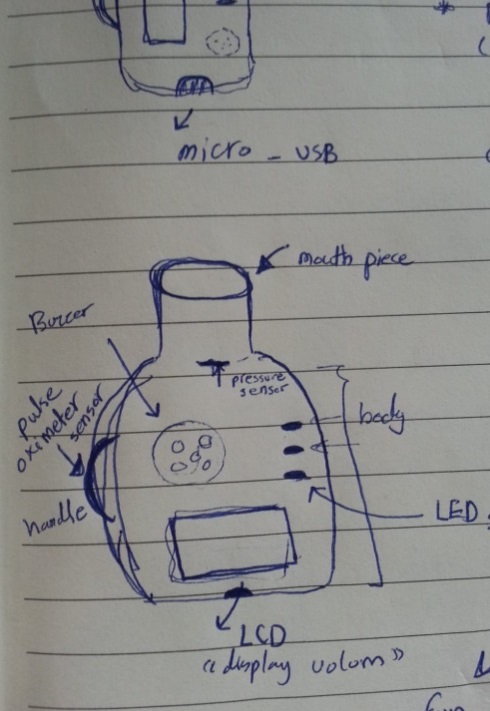 micro - USB
mouth piece
Buzzer
pressure
sensor
pulse
oximeter
sensor
body
handle
LED
LCD
"display volum"